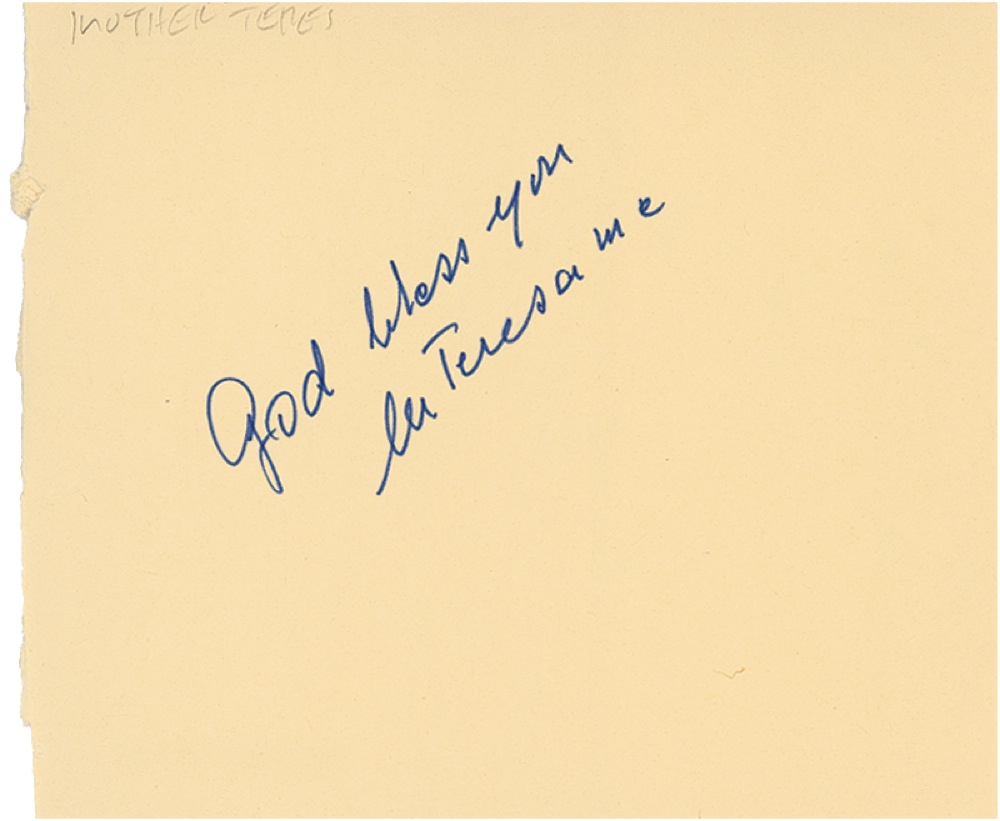 MOTHER TERES
God bless you
lu Teresa mc